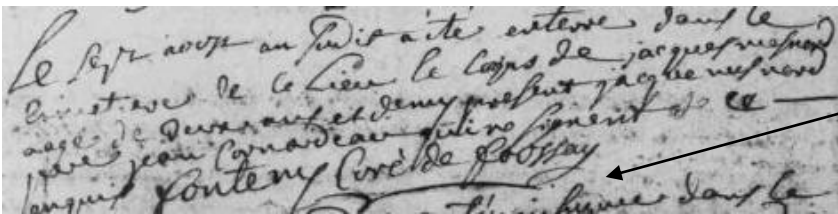 Le sept aoust an Sudit a ete enterre dans le
cimetiere de ce lieu le corps de jacques mesnard
aagé de deux ans et demy present jacque mesnard
pere jean Cornardeau qui ne signent de ce
enquis fonteny Curé de foussay
dans le